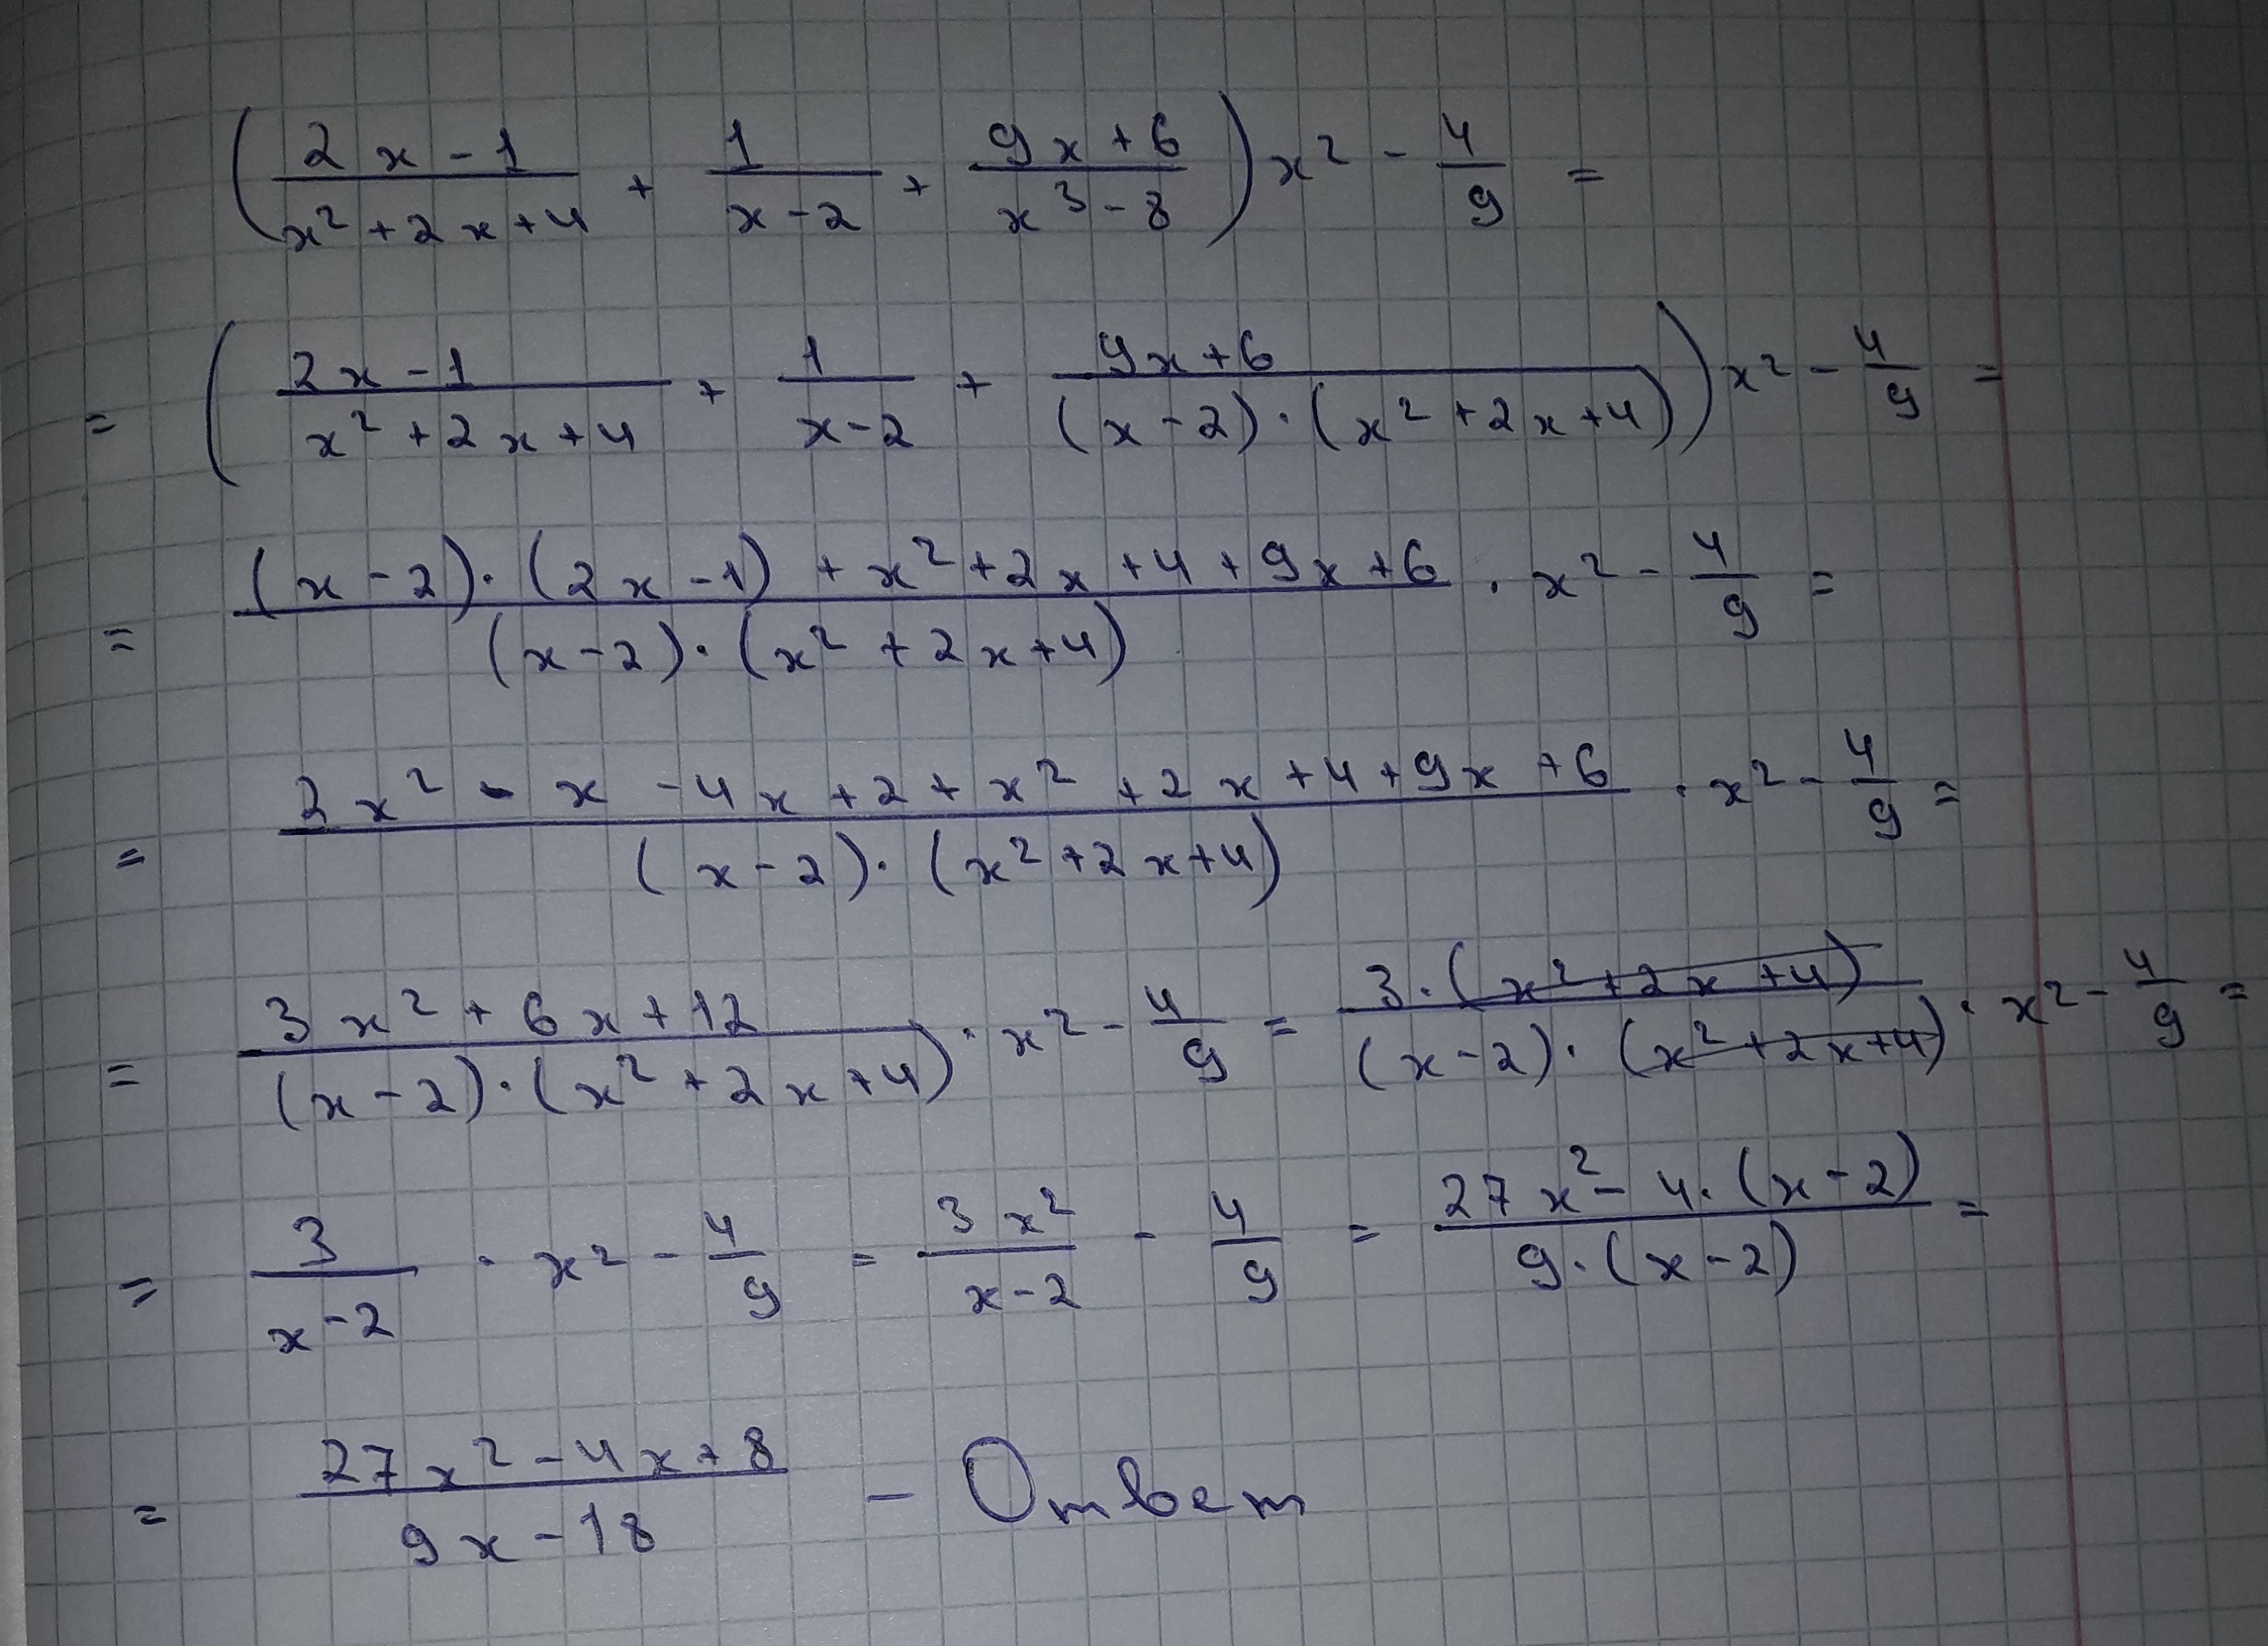 (2x-1/x²+2x+4 + 1/x-2 + 9x+6/x³-8) x² - 4/9 =
= (2x-1/x²+2x+4 + 1/x-2 + 9x+6/(x-2)·(x²+2x+4)) x² - 4/9 =
= (x-2)·(2x-1)+x²+2x+4+9x+6/(x-2)·(x²+2x+4) · x² - 4/9 =
= 2x²-x-4x+2+x²+2x+4+9x+6/(x-2)·(x²+2x+4) · x² - 4/9 =
= 3x²+6x+12/(x-2)·(x²+2x+4) · x² - 4/9 = 3·(x²+2x+4)/(x-2)·(x²+2x+4) · x² - 4/9 =
= 3/x-2 · x² - 4/9 = 3x²/x-2 - 4/9 = 27x²-4·(x-2)/9·(x-2) =
= 27x²-4x+8/9x-18 - Ответ